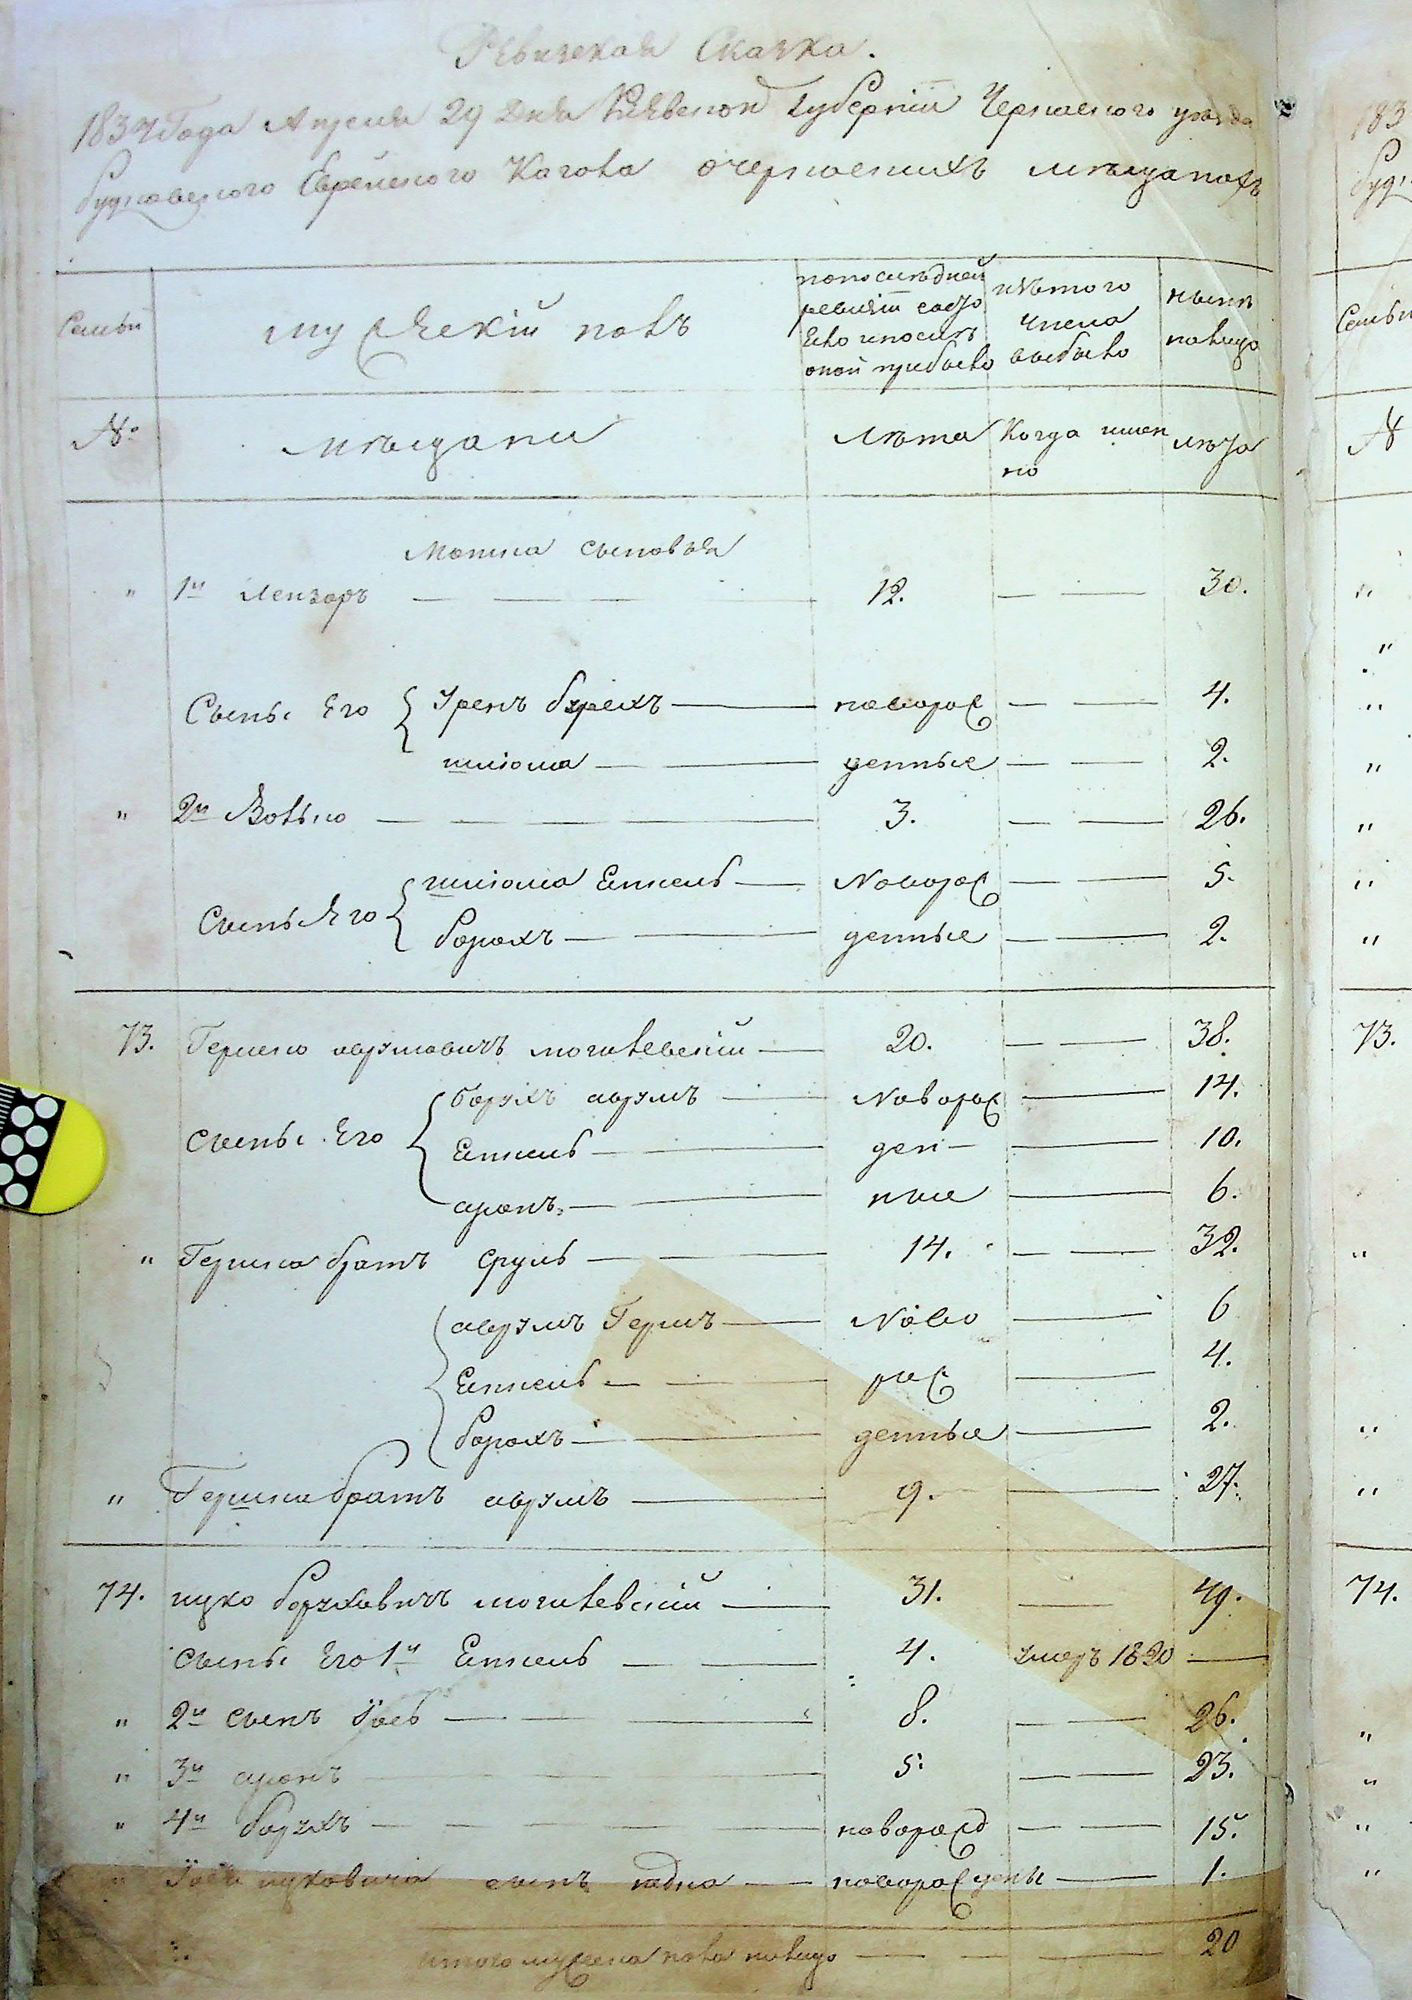 Ревизская Сказка.
1834 года Апреля 29 дня Киевской Губернии Черкаского уезда
Еврейского Кагала о мещанахъ
Семьи
мужеский полъ
по последней ревизии состояло и после оной прибыло
изъ того числа выбыло
ныне налицо
№
мещани
Лета
Когда имен но
лета
Мошка сыновья
" 1й Лейзоръ — — — 12. — — 30.
Сыны Его { Урень Бурихъ — новорож — — 4.
шлиома — — денные — — 2.
" 2й Волько — — — — 3. — — 26.
Сыны Его { шлиома Етцель — Новорож — — 5.
борохъ — — денные — — 2.
73. Гершко аврумовичъ могилевский — 20. — — 38.
сыны Его { борухъ аврумъ — Новорож — 14.
Етцель — ден — — 10.
аронъ — — ние — 6.
" Гершка братъ сруль — — 14. — — 32.
{ аврумъ Герш — Ново — 6
Етцель — — рож — 4.
борохъ — — денные — 2.
" Гершка братъ аврумъ — 9. — 27.
74. ицко боруховичъ могилевский — 31. — 49.
сыны Его 1й Етцель — — 4. умеръ 1820 —
" 2й сынъ Иось — — — 8. — — 26.
" 3й аронъ — 5. — — 23.
" 4й борухъ — — — — новорожд — — 15.
" ицковича сынъ — новорожденый — 1.
итого мужеска пола налицо — — — 20
183
Семьи
№
"
"
"
"
"
"
"
73.
"
"
"
74.
"
"
"
"